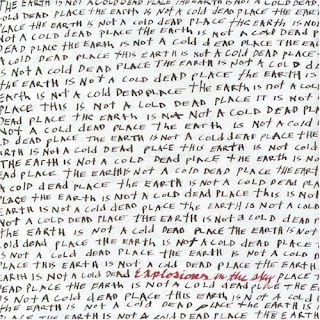 THE EARTH IS NOT A COLD DEAD PLACE THE EARTH IS NOT A COLD DEAD
OLD DEAD PLACE THE EARTH IS NOT A COLD DEAD PLACE THE EARTH
NOT A COLD DEAD PLACE THE EARTH IS NOT A COLD DEAD PLACE
DEAD PLACE THE EARTH IS NOT A COLD DEAD PLACE THE EARTH
A COLD DEAD PLACE THIS EARTH IS NOT A COLD DEAD PLACE
IS NOT A COLD DEAD PLACE THE EARTH IS NOT A COLD DEAD
THE EARTH IS NOT A COLD DEAD PLACE THE EARTH IS NOT
EARTH IS NOT A COLD DEAD PLACE THE EARTH IS NOT A COLD
PLACE THIS IS NOT A COLD DEAD PLACE IT IS NOT
DEAD PLACE THE EARTH IS NOT A COLD DEAD PLACE
NOT A COLD DEAD PLACE THE EARTH IS NOT A COLD
D DEAD PLACE THE EARTH IS NOT A COLD DEAD PLACE THE
RTH IS NOT A COLD DEAD PLACE THIS EARTH IS NOT COLD
THE EARTH IS NOT A COLD DEAD PLACE THE EARTH IS NOT A
EAD PLACE THE EARTH IS NOT A COLD DEAD PLACE THE EARTH
A COLD DEAD PLACE THE EARTH IS NOT A COLD DEAD PLACE
PLACE THE EARTH IS NOT A COLD DEAD PLACE THIS IS NOT A
EARTH IS NOT A COLD DEAD PLACE THE EARTH IS NOT A COLD
NOT A COLD DEAD PLACE THE EARTH IS NOT A COLD DEAD
THE EARTH IS NOT A COLD DEAD PLACE THE EARTH IS NOT A
COLD DEAD PLACE THE EARTH IS NOT A COLD DEAD PLACE
IS NOT A COLD DEAD PLACE THE EARTH IS NOT A COLD DEAD
PLACE THIS EARTH IS NOT A COLD DEAD PLACE THE EARTH
EARTH IS NOT A COLD DEAD Explosions in the sky PLACE T
DEAD PLACE THE EARTH IS NOT A COLD DEAD PLACE THE EARTH
IS NOT A COLD DEAD PLACE THIS EARTH IS NOT A COLD
THE EARTH IS NOT A COLD DEAD PLACE THE EARTH IS NOT A
THE EARTH IS NOT A COLD DEAD PLACE